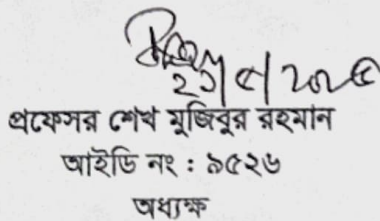 ২৭/৫/২০২৫
প্রফেসর শেখ মুজিবুর রহমান
আইডি নং : ৯৫২৬
অধ্যক্ষ